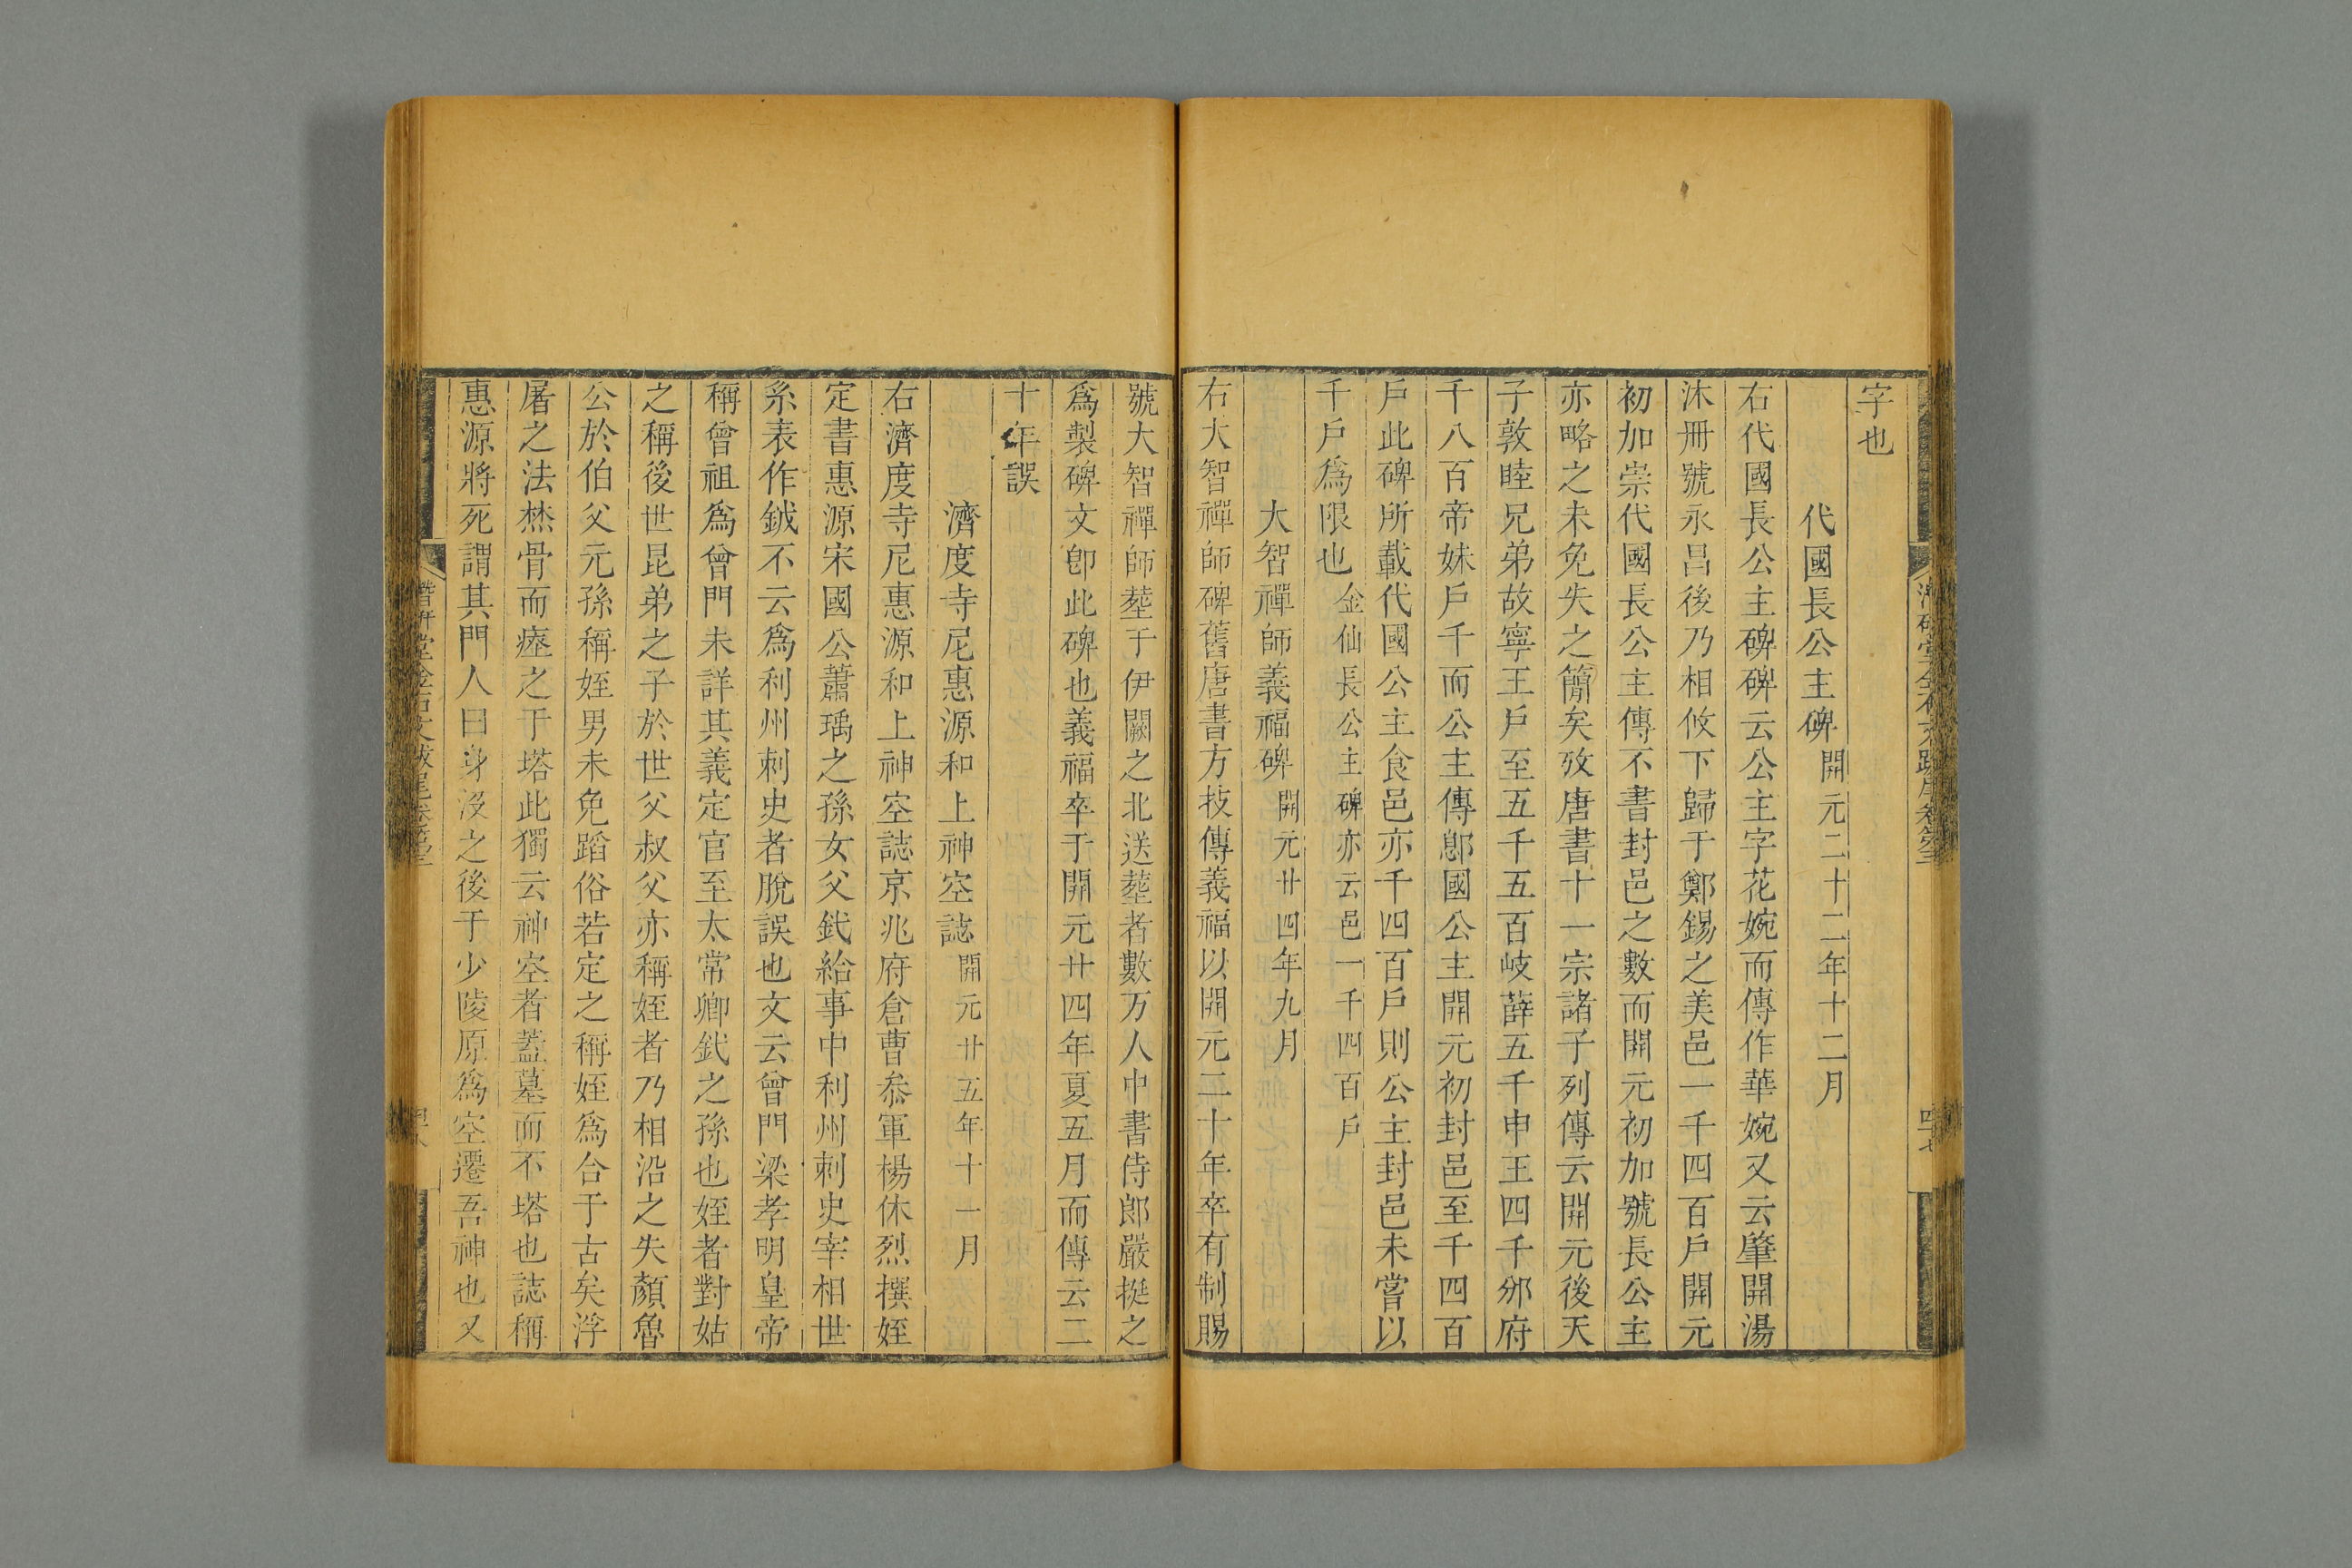 字也
代國長公主碑開元二十二年十二月
右代國長公主碑碑云公主字花婉而傳作華婉又云肇開湯
沐冊號永昌後乃相攸下歸于鄭錫之美邑一千四百戶開元
初加崇代國長公主傳不書封邑之數而開元初加號長公主
亦略之未免失之簡矣攷唐書十一宗諸子列傳云開元後天
子敦睦兄弟故寧王戶至五千五百岐薛五千申王四千邠府
千八百帝妹戶千而公主傳郎國公主開元初封邑至千四百
戶此碑所載代國公主食邑亦千四百戶則公主封邑未嘗以
千戶爲限也金仙長公主碑亦云邑一千四百戶
大智禪師義福碑開元廿四年九月
右大智禪師碑舊唐書方技傳義福以開元二十年卒有制賜
號大智禪師塟于伊闕之北送塟者數万人中書侍郎嚴挺之
爲製碑文卽此碑也義福卒于開元廿四年夏五月而傳云二
十年誤
濟度寺尼惠源和上神空誌開元廿五年十一月
右濟度寺尼惠源和上神空誌京兆府倉曹叅軍楊休烈撰姪
定書惠源宋國公蕭瑀之孫女父鈛給事中利州刺史宰相世
系表作鉞不云爲利州刺史者脫誤也文云曾門梁孝明皇帝
稱曾祖爲曾門未詳其義定官至太常卿鈛之孫也姪者對姑
之稱後世昆弟之子於世父叔父亦稱姪者乃相沿之失顏魯
公於伯父元孫稱姪男未免蹈俗若定之稱姪爲合于古矣浮
屠之法焚骨而瘞之于塔此獨云神空者蓋墓而不塔也誌稱
惠源將死謂其門人曰身沒之後于少陵原爲空遷吾神也又
潛研堂金石文跋尾卷第六